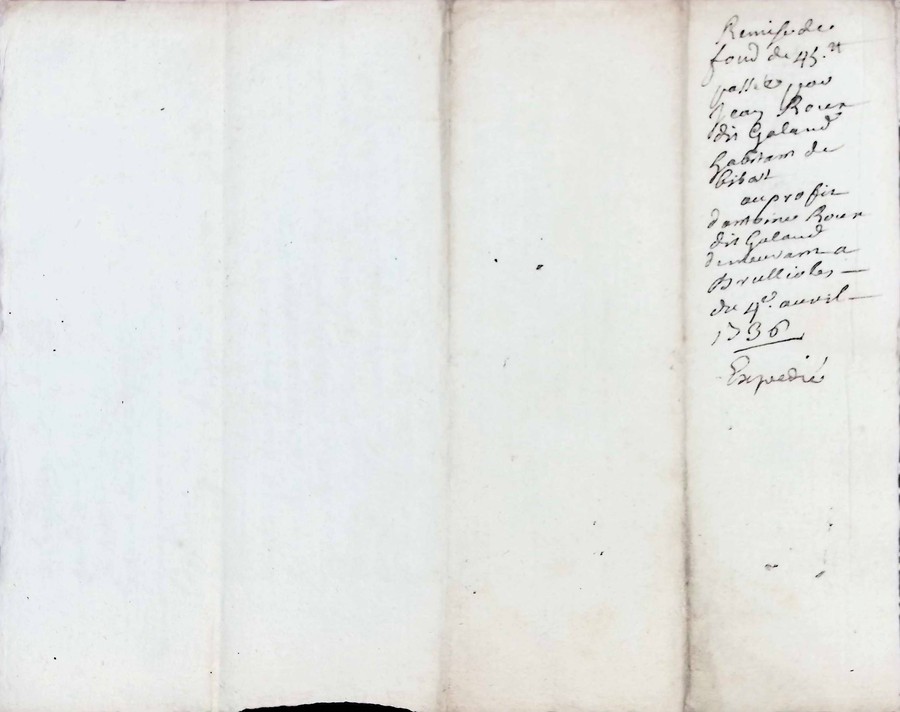 Remise de
fond de 45.tt
passée par
Jean Roux
dit Galand
habitant de
bibost
au profit
d'antoine Roux
dit Galand
demeurant a
Brullioles
du 4e. auvril
1736
Expedié